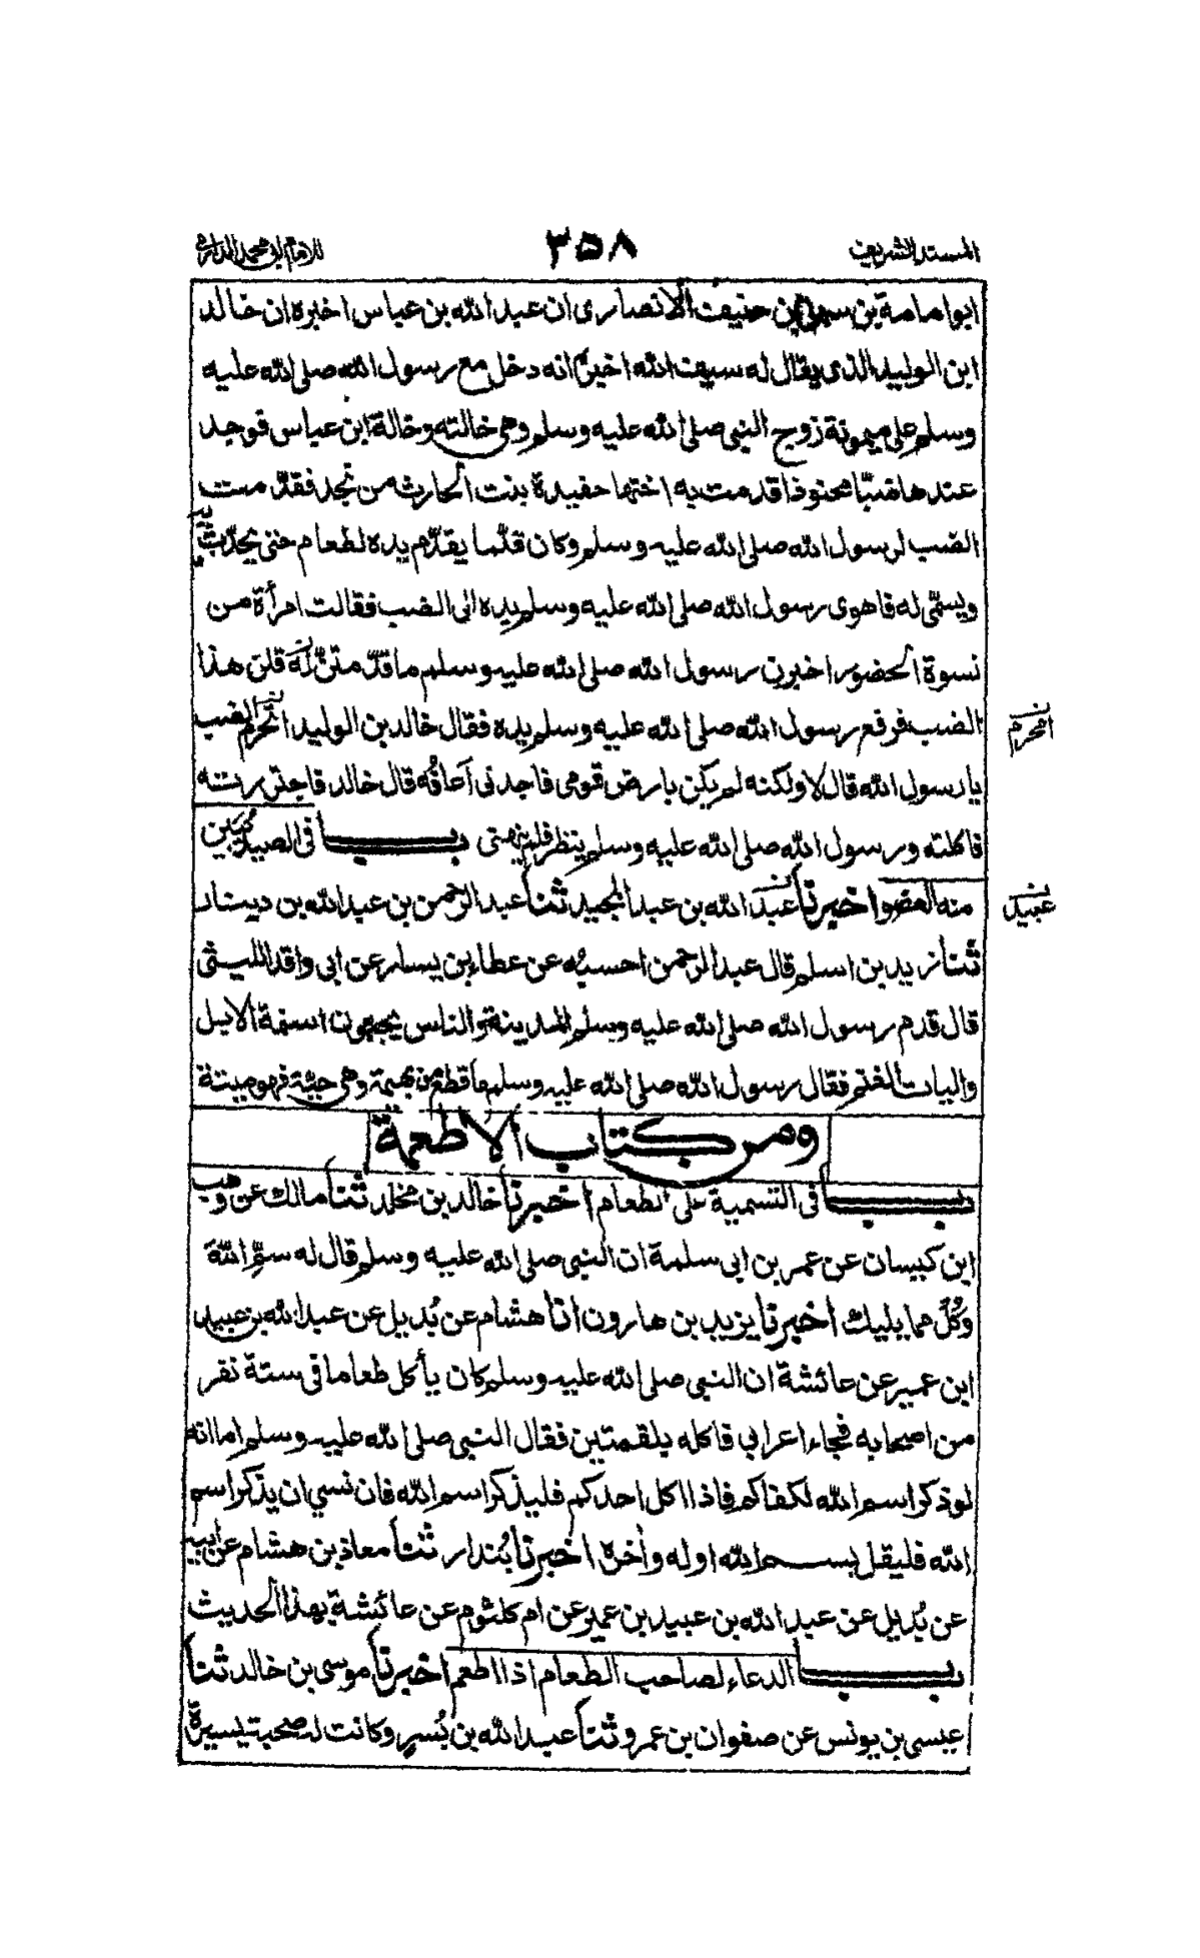 المسند الشريف ٣٥٨ للامام ابى محمد الدارمى
ابو امامة بن سهل بن حنيف الانصارى ان عبد الله بن عباس اخبره ان خالد
ابن الوليد الذى يقال له سيف الله اخبره انه دخل مع رسول الله صلى الله عليه
وسلم على ميمونة زوج النبى صلى الله عليه وسلم وهى خالته وخالة ابن عباس فوجد
عندها ضبّا محنوذا قدمت به اختها حفيدة بنت الحارث من نجد فقدّمت
الضب لرسول الله صلى الله عليه وسلم وكان قلّما يقدّم يده لطعام حتى يحدّث به
ويسمّى له فاهوى رسول الله صلى الله عليه وسلم يده الى الضب فقالت امرأة من
نسوة الحضور اخبرن رسول الله صلى الله عليه وسلم ما قدّمتنّ له قلن هذا
الضب فرفع رسول الله صلى الله عليه وسلم يده فقال خالد بن الوليد اتحرم الضب
امحرم
يا رسول الله قال لا ولكنه لم يكن بارض قومى فاجدنى آعافُه قال خالد فاجتررته
فاكلته ورسول الله صلى الله عليه وسلم ينظر فلم ينهنى باب فى الصيد يبين
منه العضو اخبرنا عبد الله بن عبد المجيد ثنا عبد الرحمن بن عبد الله بن دينار
عبيد
ثنا زيد بن اسلم قال عبد الرحمن احسبه عن عطاء بن يسار عن ابى واقد الليثى
قال قدم رسول الله صلى الله عليه وسلم المدينة والناس يجبون اسنمة الابل
واليات الغنم فقال رسول الله صلى الله عليه وسلم ما قطع من بهيمة وهى حيّة فهو ميتة
ومن كتاب الاطعمة
باب فى التسمية على الطعام اخبرنا خالد بن مخلد ثنا مالك عن وهب
ابن كيسان عن عمر بن ابى سلمة ان النبى صلى الله عليه وسلم قال له سمّ الله
وكُلْ مما يليك اخبرنا يزيد بن هارون انا هشام عن بُديل عن عبد الله بن عبيد
ابن عمير عن عائشة ان النبى صلى الله عليه وسلم كان يأكل طعاما فى ستة نفر
من اصحابه فجاء اعرابي فاكله بلقمتين فقال النبى صلى الله عليه وسلم اما انه
لو ذكر اسم الله لكفاكم فاذا اكل احدكم فليذكر اسم الله فان نسي ان يذكر اسم
الله فليقل بسم الله اوله وآخره اخبرنا بُندار ثنا معاذ بن هشام عن ابيه
عن بُديل عن عبد الله بن عبيد بن عمير عن ام كلثوم عن عائشة بهذا الحديث
باب الدعاء لصاحب الطعام اذا اطعم اخبرنا موسى بن خالد ثنا
عيسى بن يونس عن صفوان بن عمرو ثنا عبد الله بن بُسرٍ وكانت له صحبة يسيرة